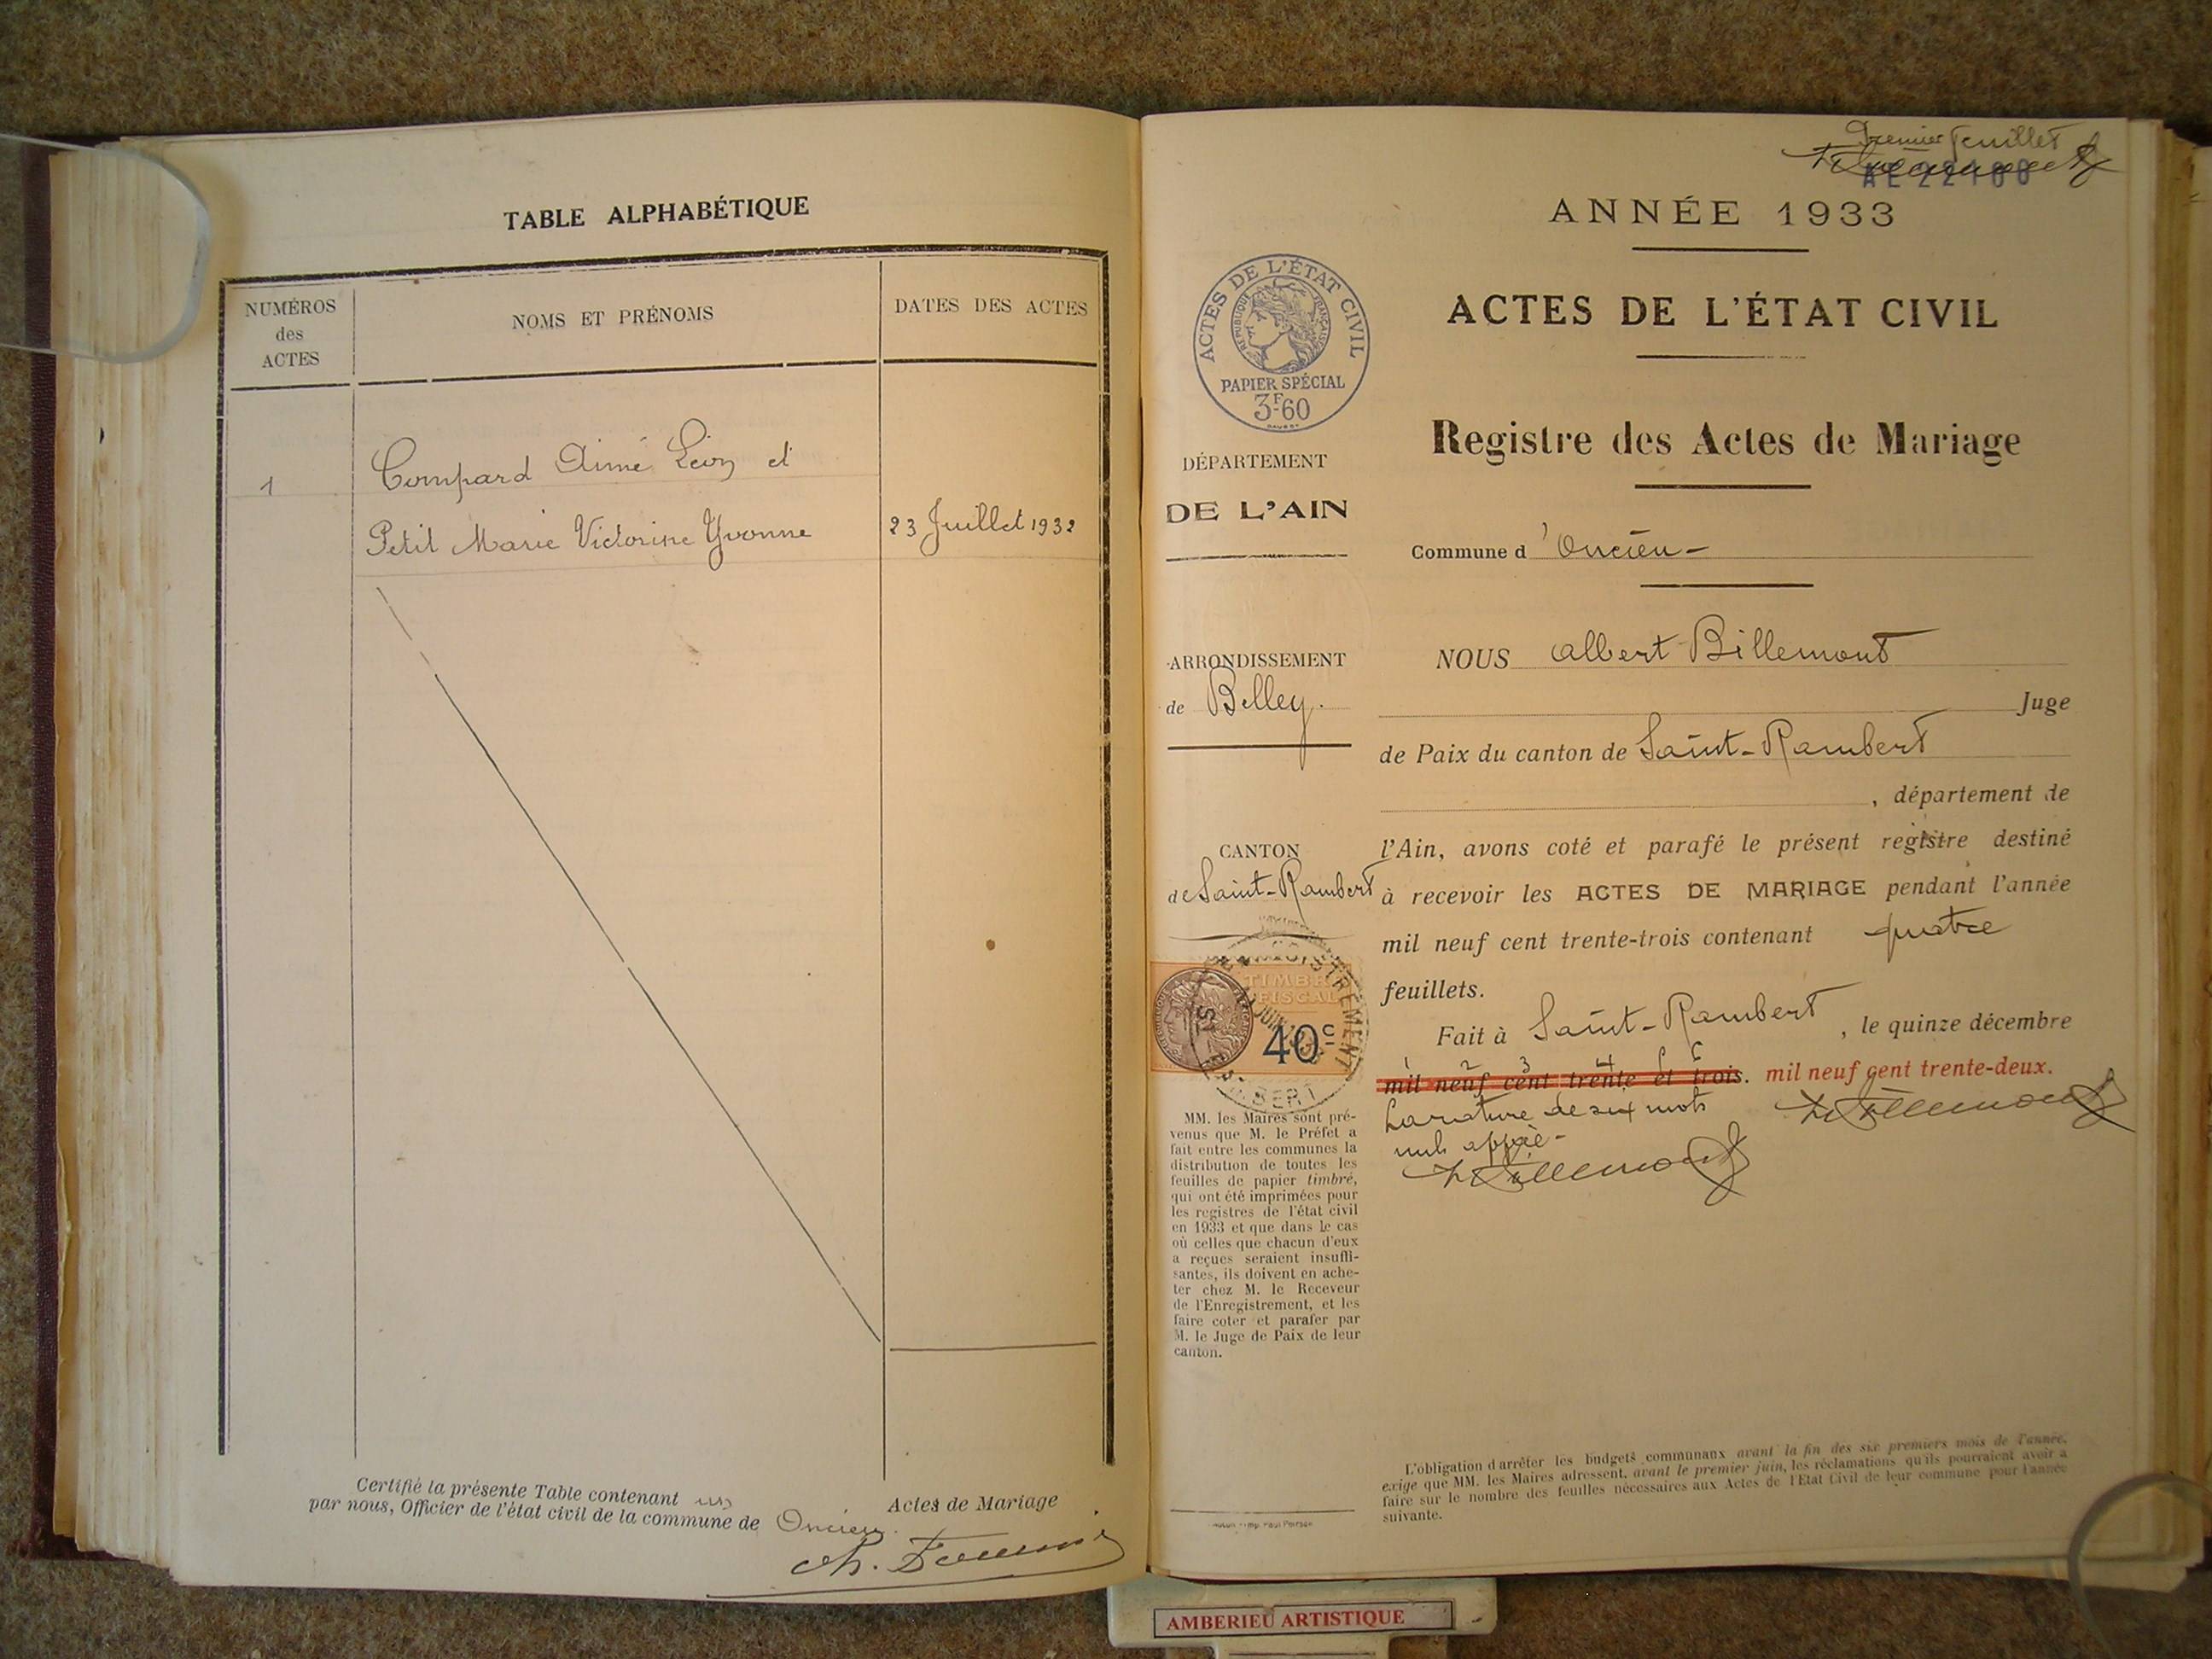 TABLE ALPHABÉTIQUE
NUMÉROS
des
ACTES
NOMS ET PRÉNOMS
DATES DES ACTES
1
Compard Aimé Léon et
Petit Marie Victorine Yvonne
23 Juillet 1932
Certifié la présente Table contenant un Actes de Mariage
par nous, Officier de l'état civil de la commune de Oncieu.
Premier feuillet
AE 22100
ANNÉE 1933
ACTES DE L'ÉTAT CIVIL
RÉPUBLIQUE FRANÇAISE
PAPIER SPÉCIAL
3F-60
ACTES DE L'ÉTAT CIVIL
Registre des Actes de Mariage
DÉPARTEMENT
DE L'AIN
Commune d'Oncieu -
ARRONDISSEMENT
de Belley.
NOUS Albert Billemont
Juge
de Paix du canton de Saint-Rambert
, département de
CANTON
de Saint-Rambert
l'Ain, avons coté et parafé le présent registre destiné
à recevoir les ACTES DE MARIAGE pendant l'année
mil neuf cent trente-trois contenant quatre
feuillets.
Fait à Saint-Rambert, le quinze décembre
1 2 3 4 5 6
mil neuf cent trente et trois. mil neuf cent trente-deux.
La rature de six mots
nuls
TIMBRE
FISCAL
40c
MM. les Maires sont pré-
venus que M. le Préfet a
fait entre les communes la
distribution de toutes les
feuilles de papier timbré,
qui ont été imprimées pour
les registres de l'état civil
en 1933 et que dans le cas
où celles que chacun d'eux
a reçues seraient insuffi-
santes, ils doivent en ache-
ter chez M. le Receveur
de l'Enregistrement, et les
faire coter et parafer par
M. le Juge de Paix de leur
canton.
L'obligation d'arrêter les budgets communaux avant la fin des six premiers mois de l'année,
exige que MM. les Maires adressent, avant le premier juin, les réclamations qu'ils pourraient avoir à
faire sur le nombre des feuilles nécessaires aux Actes de l'Etat Civil de leur commune pour l'année
suivante.
AMBERIEU ARTISTIQUE